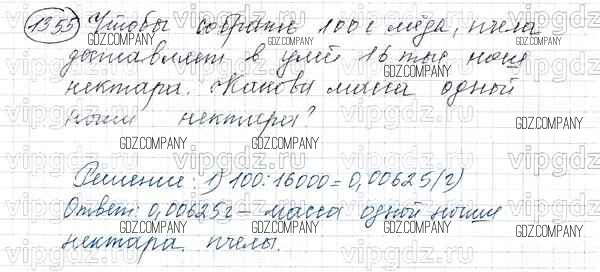 1355 Чтобы собрать 100 г мёда, пчела
доставляет в улей 16 тыс нош
нектара. Какова масса одной
ноши нектара?
Решение: 1) 100:16000=0,00625(г)
Ответ: 0,00625г – масса одной ноши
нектара пчелы.